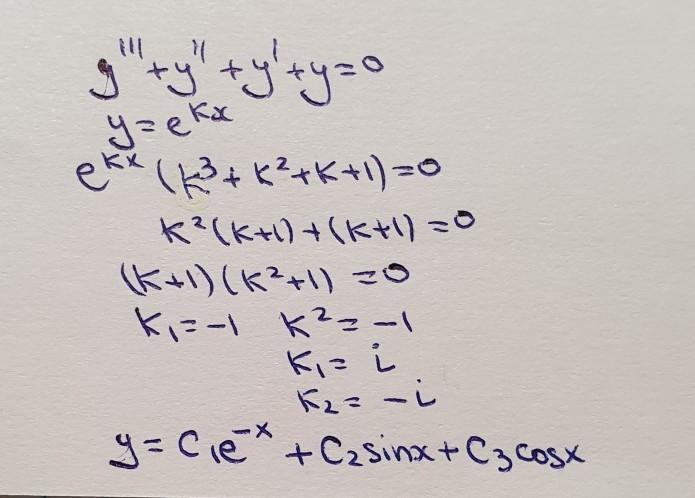 y''' + y'' + y' + y = 0
y = e^{kx}
e^{kx} (k³ + k² + k + 1) = 0
k² (k+1) + (k+1) = 0
(k+1) (k²+1) = 0
k₁ = -1 k² = -1
k₁ = i
k₂ = -i
y = C₁e^{-x} + C₂sinx + C₃cosx